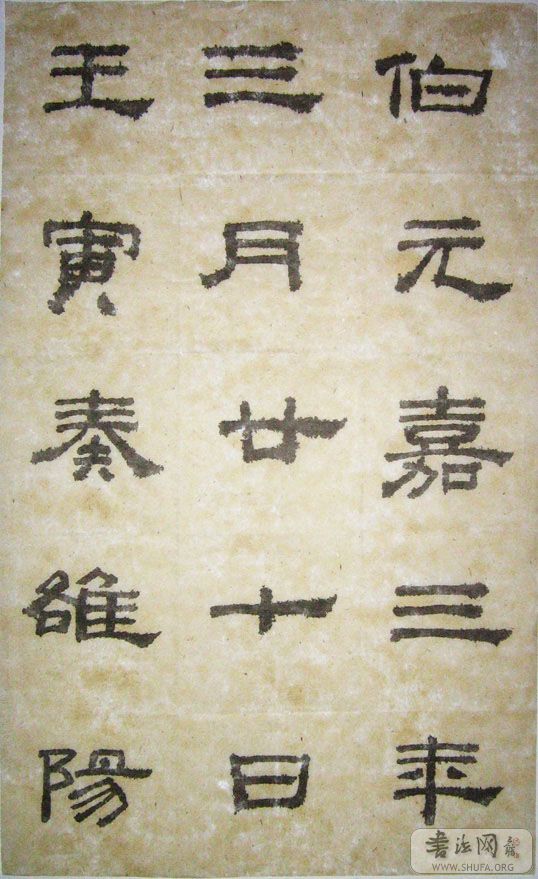 伯元嘉三年
三月廿七日
壬寅奏雒陽
書法网
WWW.SHUFA.ORG